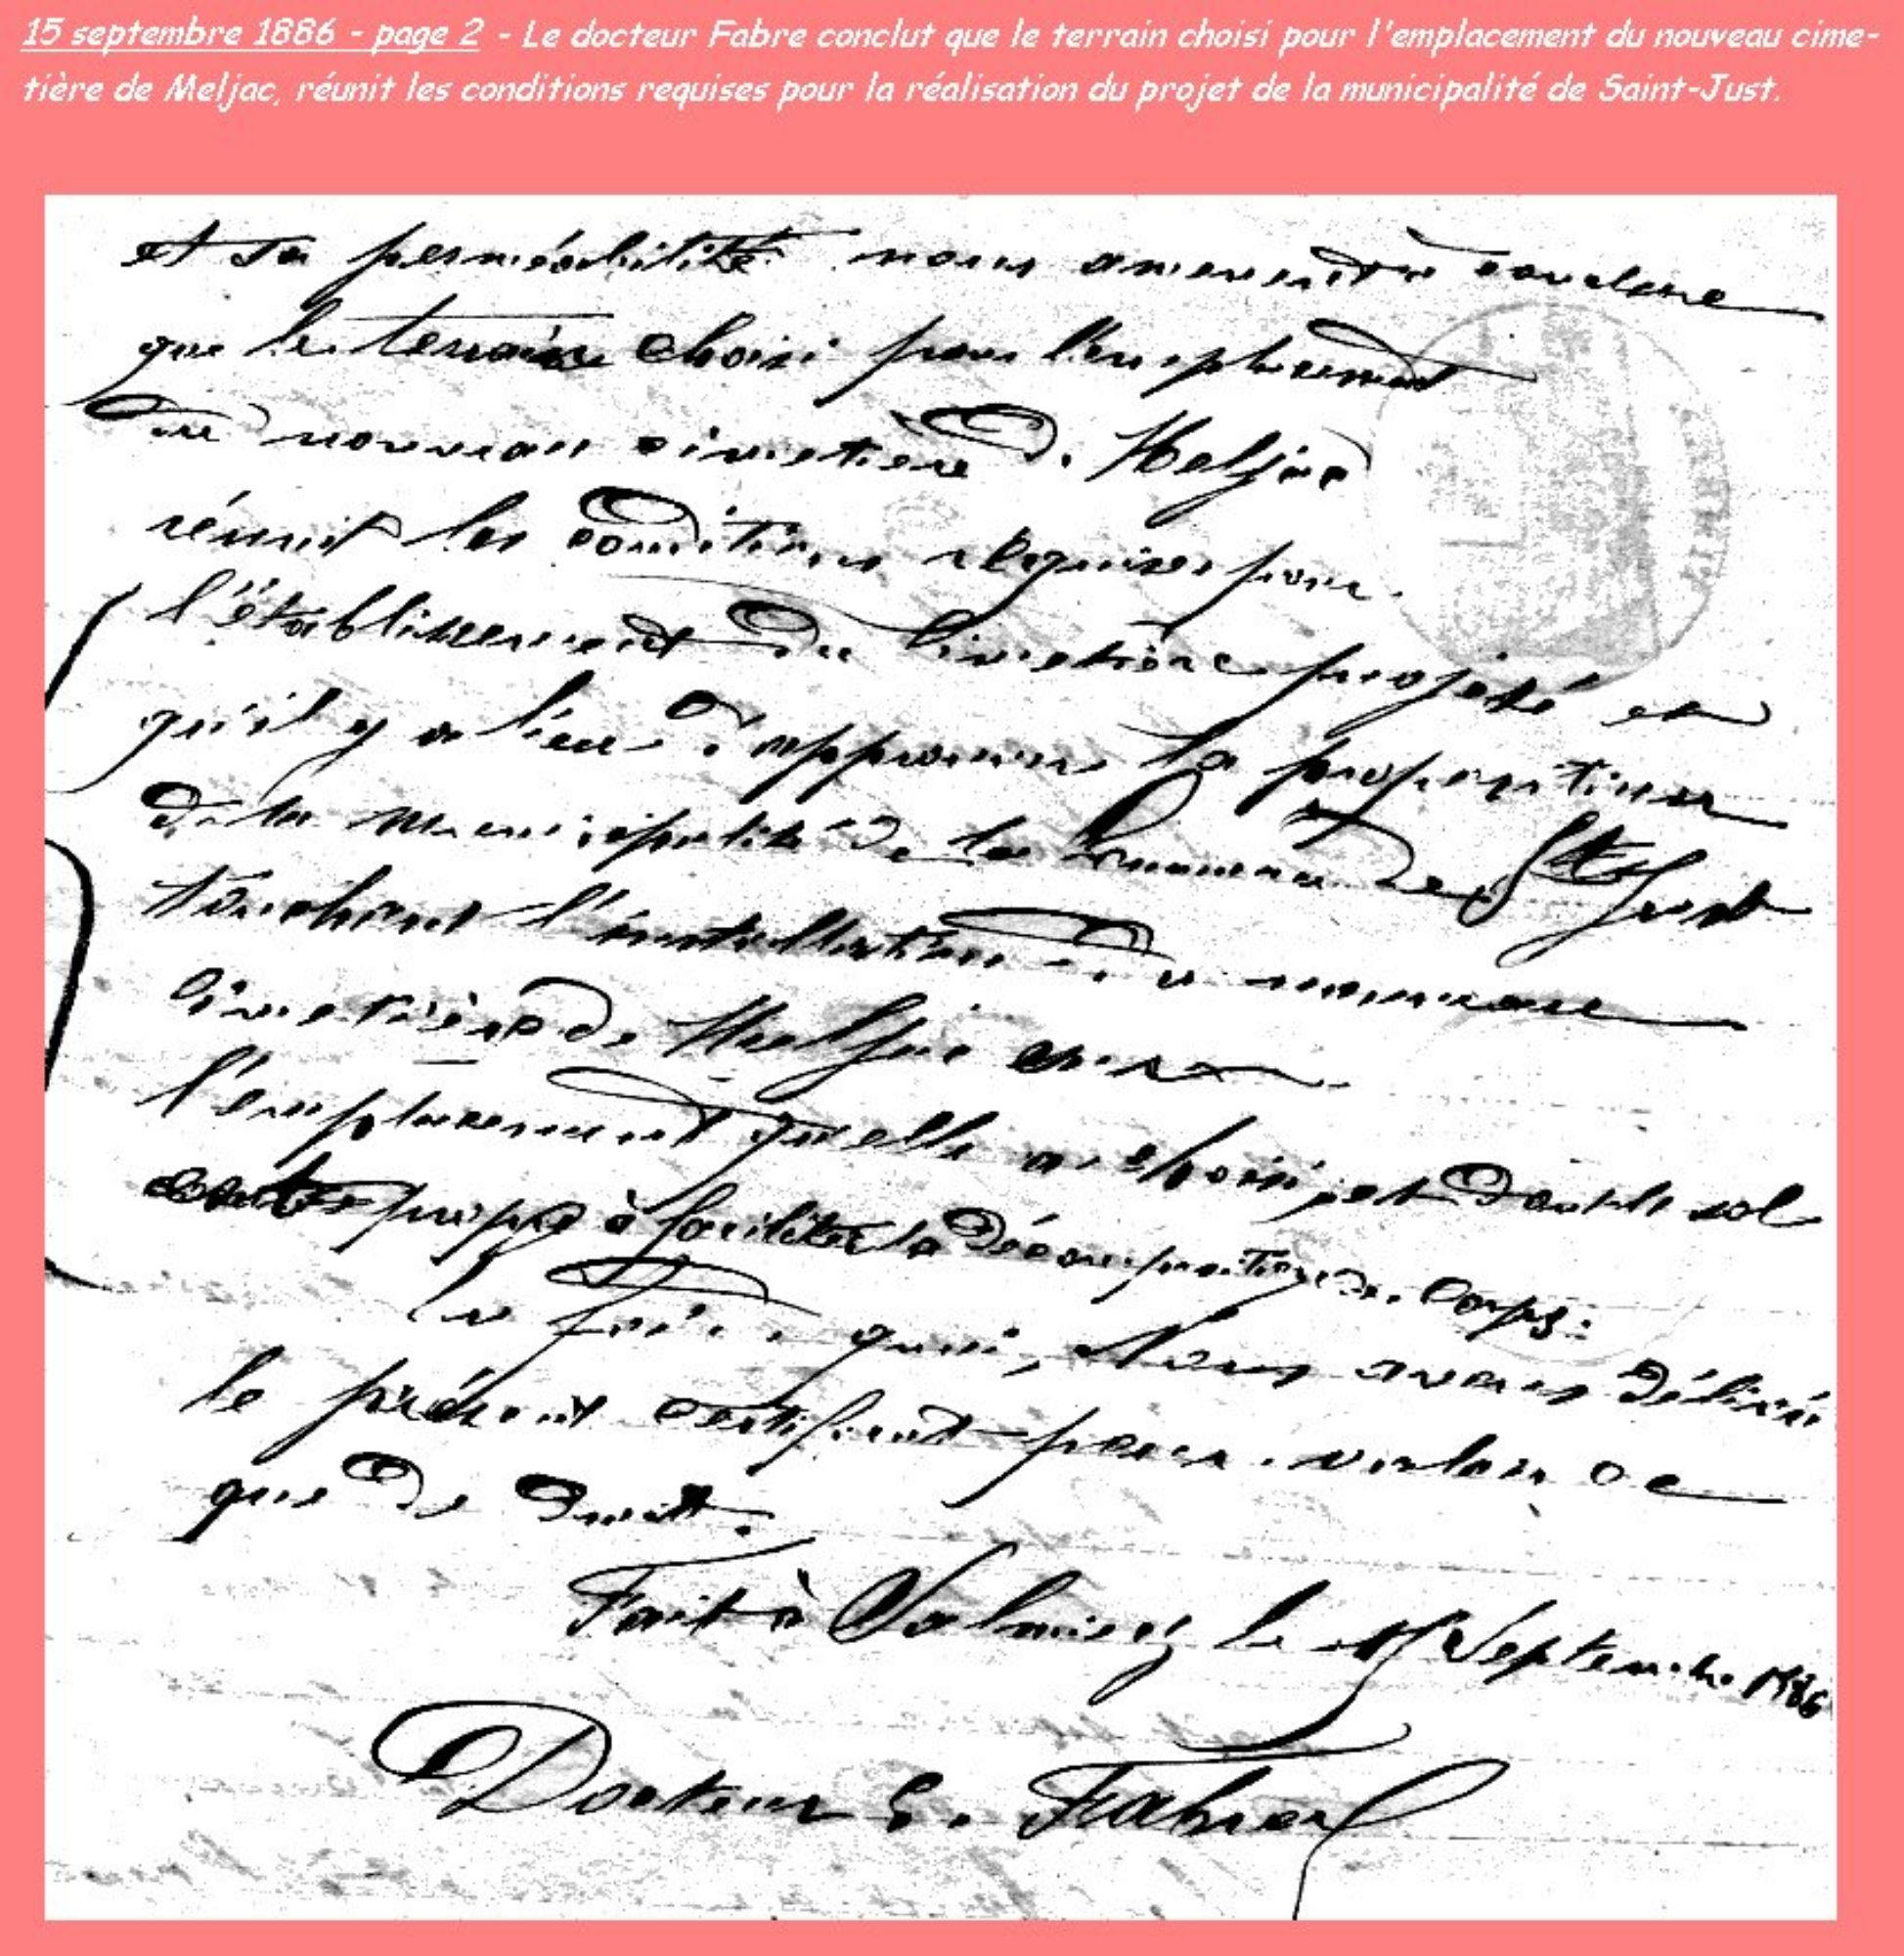 15 septembre 1886 - page 2 - Le docteur Fabre conclut que le terrain choisi pour l'emplacement du nouveau cime-
tière de Meljac, réunit les conditions requises pour la réalisation du projet de la municipalité de Saint-Just.
et sa perméabilité nous amenent à conclure
que le terrain choisi pour l'emplacement
du nouveau cimetière de Meljac
réunit les conditions requises pour
l'établissement du Cimetière projeté et
qu'il y a lieu d'approuver la proposition
de la municipalité de la Commune de St Just
touchant l'installation du nouveau
Cimetière de Meljac
l'emplacement qu'elle a choisi et dont le sol
propre à faciliter la décomposition des Corps.
En foi de quoi, Nous avons délivré
le présent certificat pour valoir ce
que de droit.
Fait à Salmiech le 15 Septembre 1886
Docteur E. Fabre